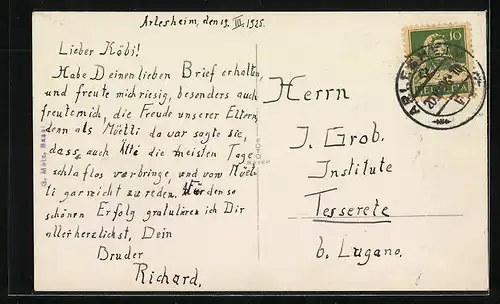 Arlesheim, den 19. III. 1925.
Lieber Köbi!
Habe Deinen lieben Brief erhalten,
und freute mich riesig, besonders auch
freute mich, die Freude unserer Eltern,
denn als Müetti da war sagte sie,
dass, auch Ätti die meisten Tage
schlaflos verbringe, und vom Müetti
gar nicht zu reden. Für den so
schönen Erfolg gratuliere ich Dir
allerherzlichst. Dein
Bruder
Richard.
Herrn
J. Grob.
Institute
Tesserete
b. Lugano.
10
HELVETIA
ARLESHEIM
G. Metz, Basel